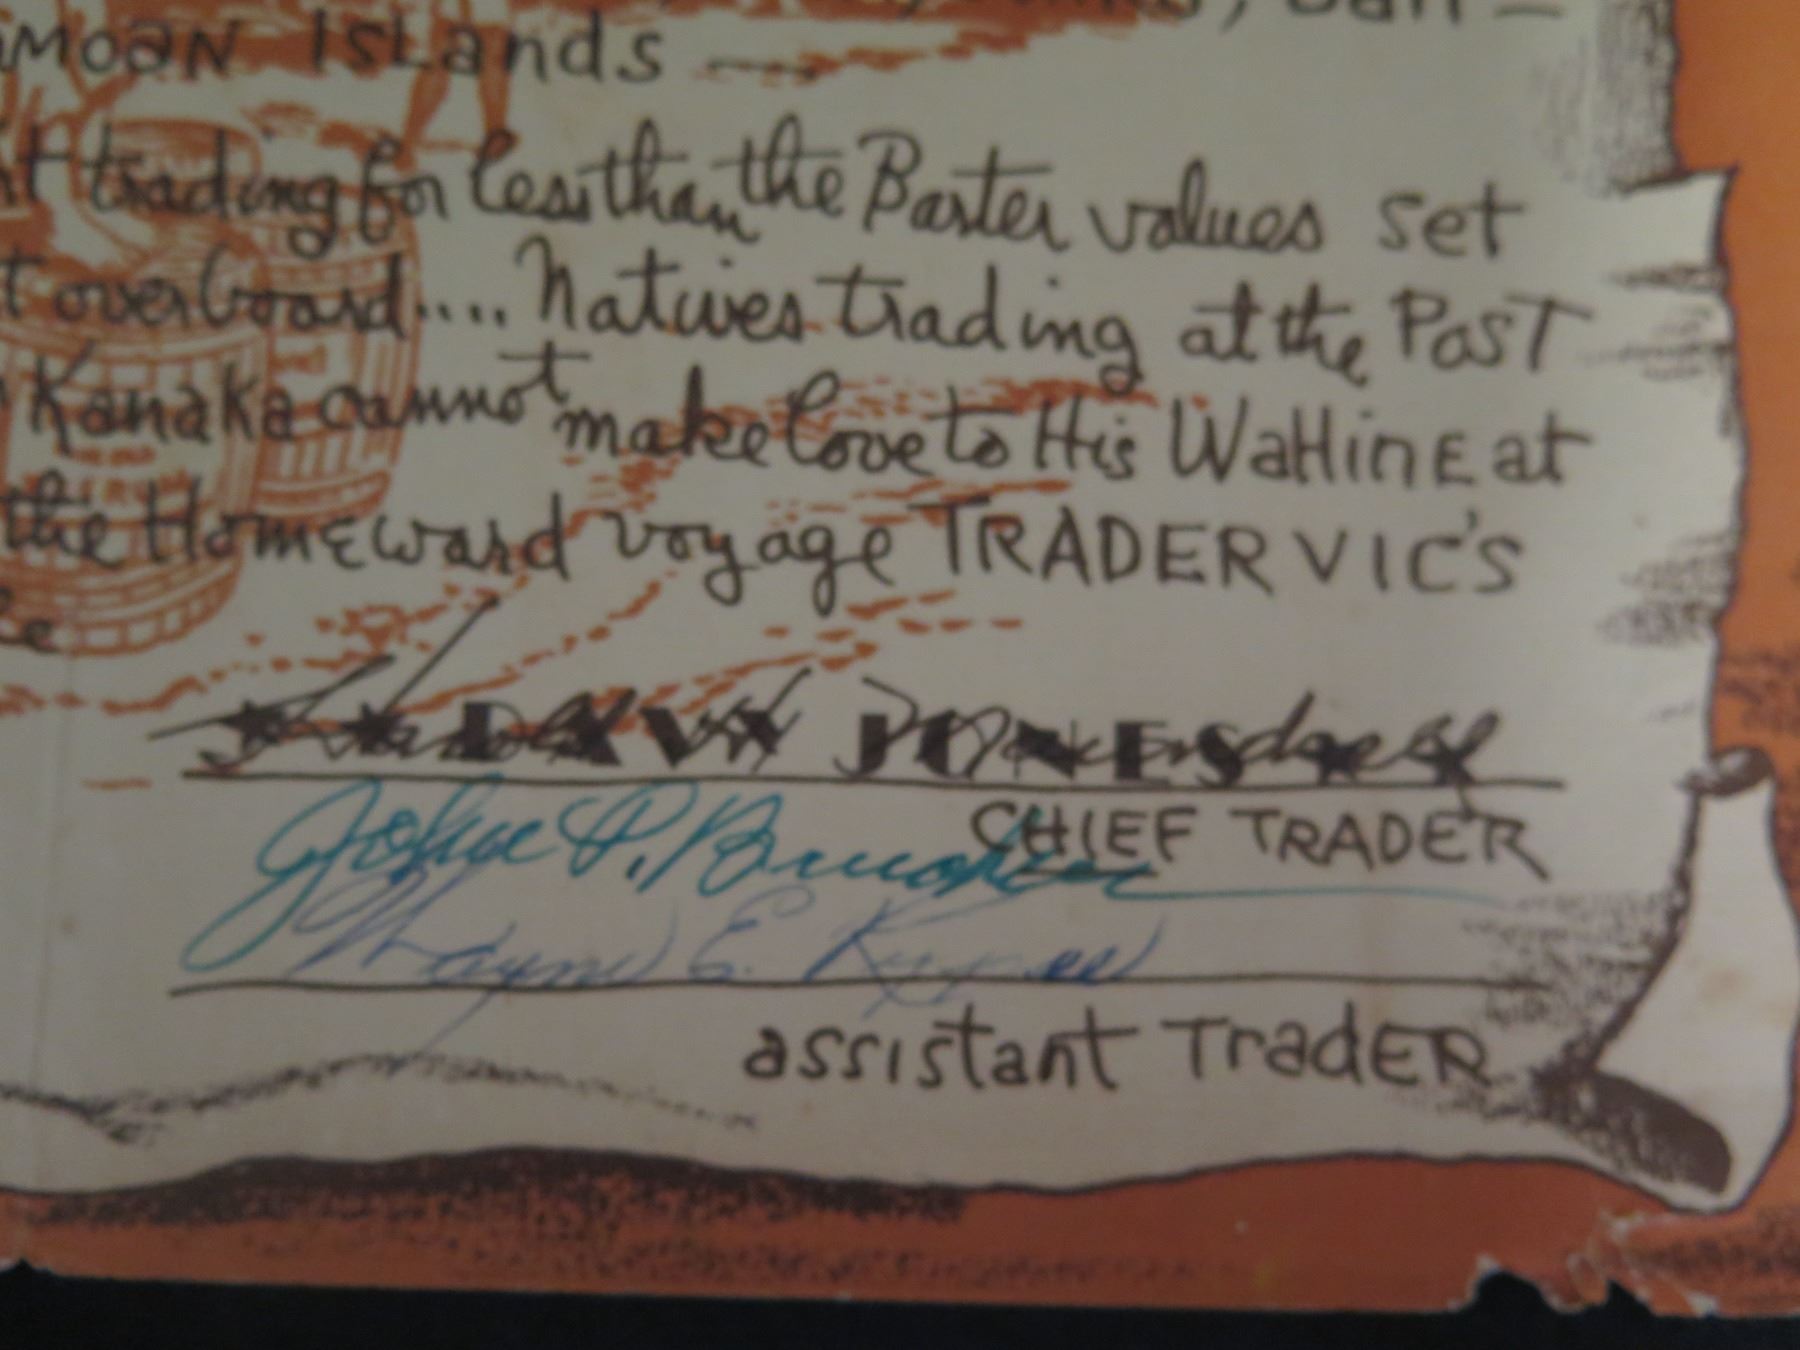 MOAN ISLands —
trading for less than the Barter values set
overboard.... Natives trading at the POST
Kanaka cannot make love to His WaHinE at
the HomEward voyage TRADER VIC'S
★ ★ DAVY JONES ★ ★
CHIEF TRADER
John P.
Wayne E.
assistant TradER